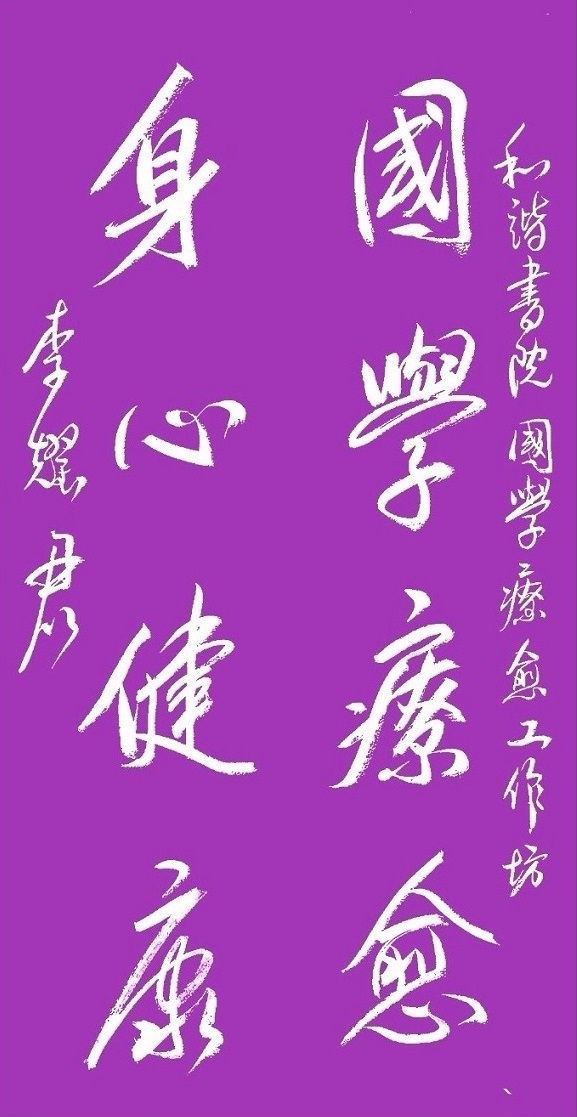 和諧書院 國學療愈工作坊
國學療愈
身心健康
李耀君